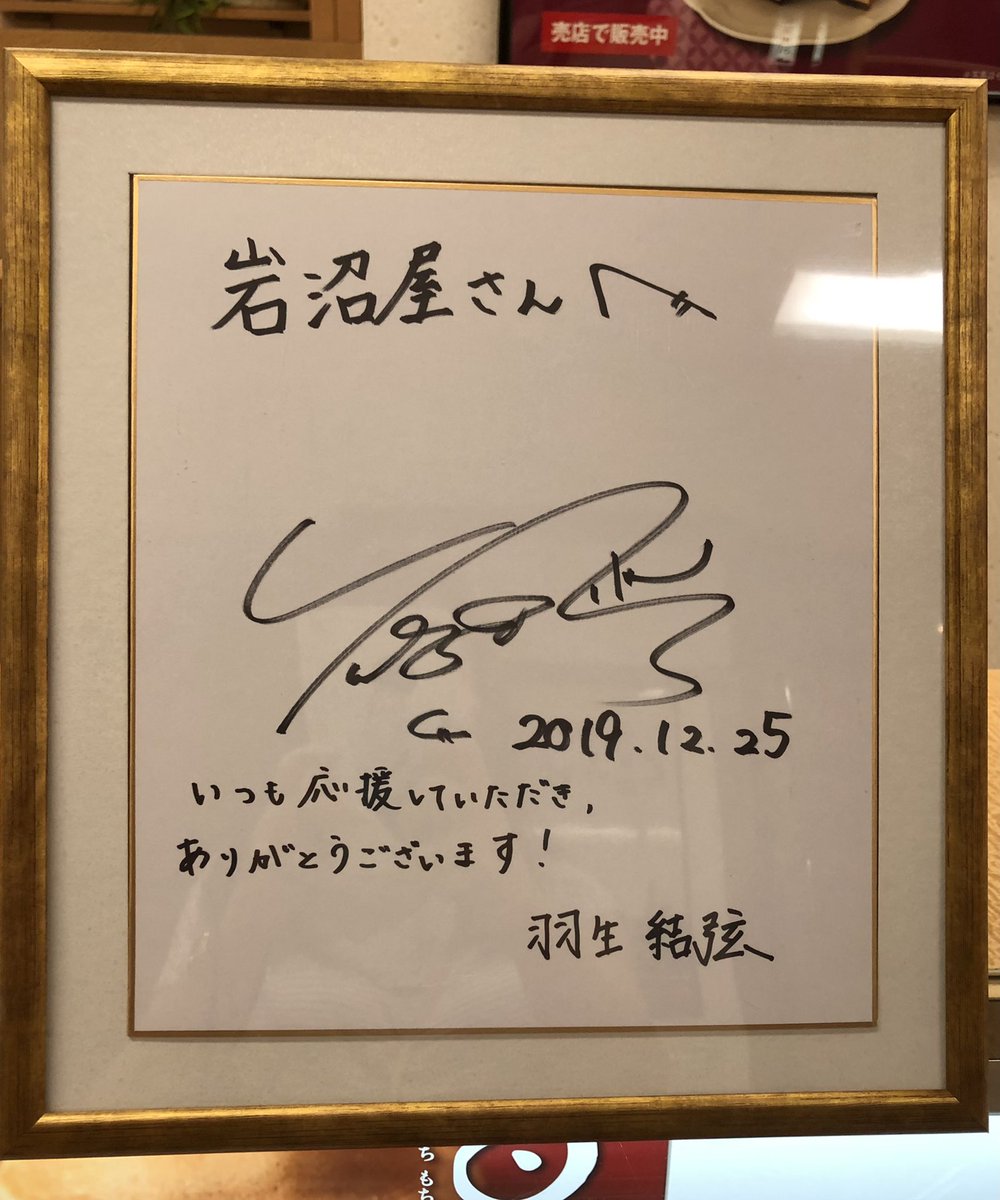 売店で販売中
岩沼屋さんへ
2019.12.25
いつも応援していただき,
ありがとうございます!
羽生 結弦
ちもち